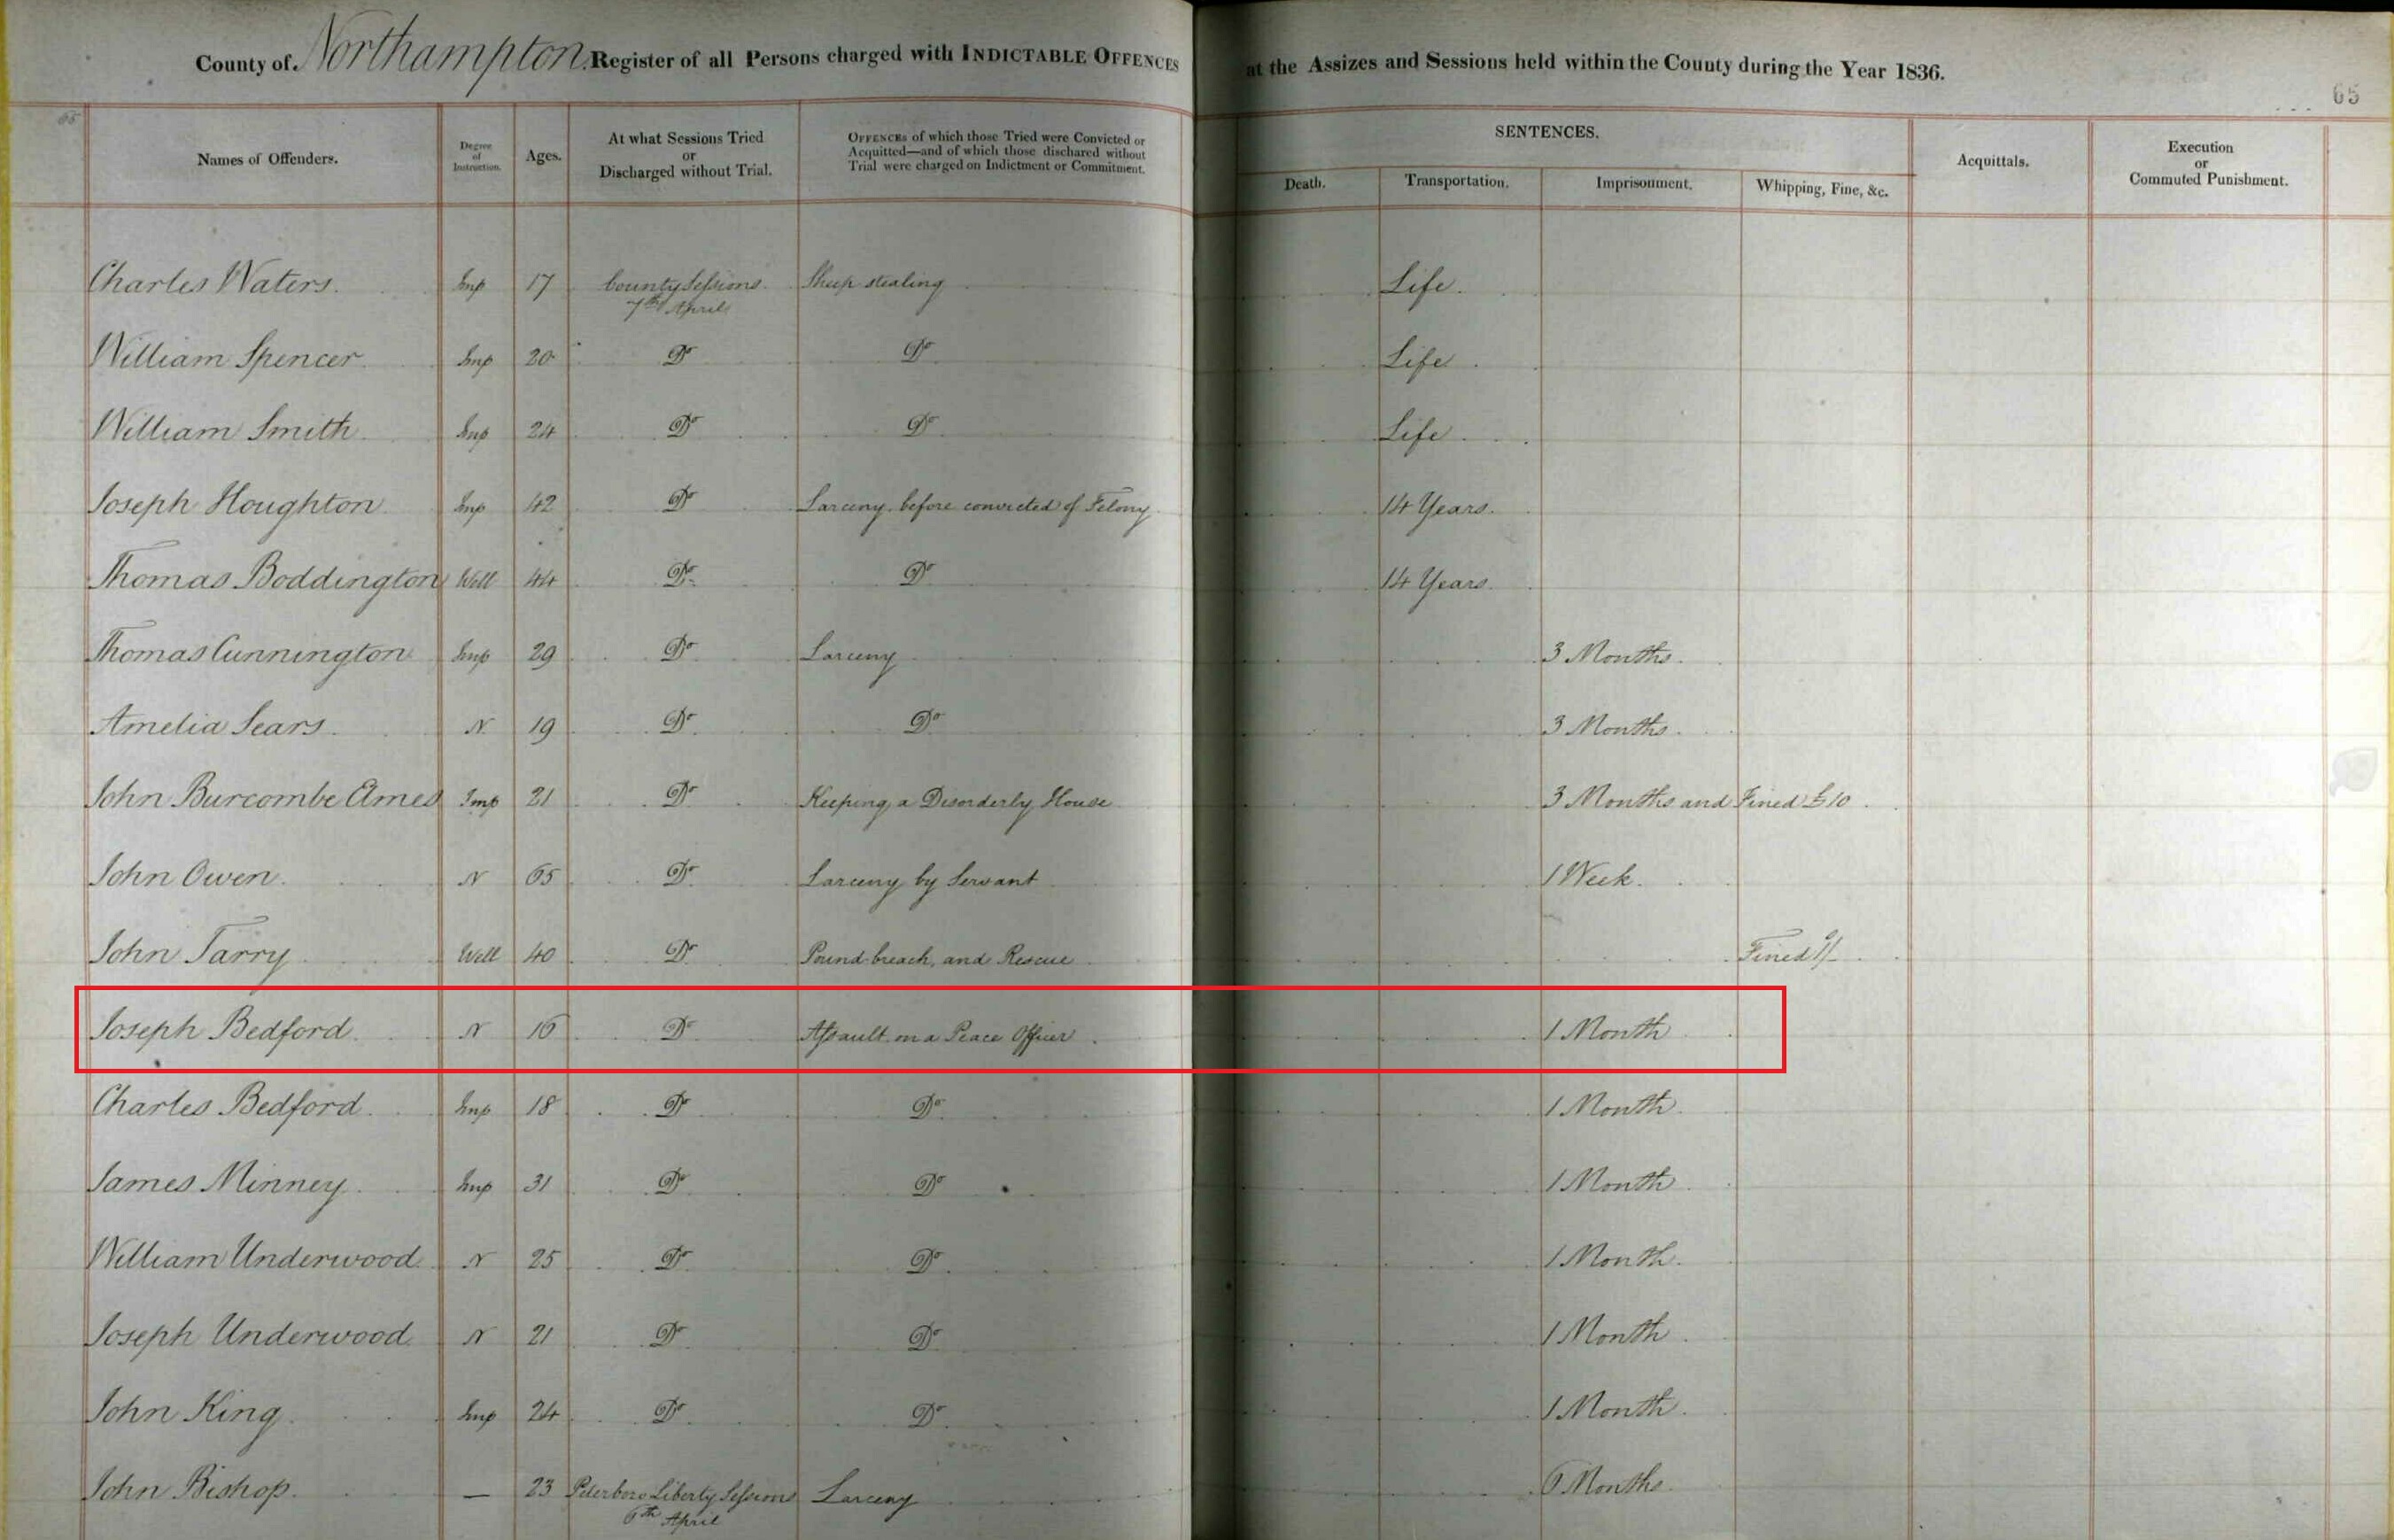 County of Northampton. Register of all Persons charged with INDICTABLE OFFENCES at the Assizes and Sessions held within the County during the Year 1836.
65
65
Names of Offenders. Degree of Instruction. Ages. At what Sessions Tried or Discharged without Trial. OFFENCES of which those Tried were Convicted or Acquitted—and of which those dischared without Trial were charged on Indictment or Commitment. SENTENCES. Acquittals. Execution or Commuted Punishment.
Death. Transportation. Imprisonment. Whipping, Fine, &c.
Charles Waters. Imp 17 County Sessions 7th April Sheep stealing Life.
William Spencer Imp 20 Do Do Life
William Smith Imp 24 Do Do Life
Joseph Houghton Imp 42 Do Larceny, before convicted of Felony 14 Years.
Thomas Boddington Well 44 Do Do 14 Years.
Thomas Cunnington Imp 29 Do Larceny 3 Months.
Amelia Sears N 19 Do Do 3 Months.
John Burcombe Ames Imp 21 Do Keeping a Disorderly House 3 Months and Fined £10
John Owen N 65 Do Larceny by Servant 1 Week.
John Tarry Well 40 Do Pound-breach, and Rescue Fined 1/-
Joseph Bedford N 16 Do Assault on a Peace Officer 1 Month
Charles Bedford Imp 18 Do Do 1 Month
James Minney Imp 31 Do Do 1 Month
William Underwood N 25 Do Do 1 Month
Joseph Underwood N 21 Do Do 1 Month
John King Imp 24 Do Do 1 Month
John Bishop — 23 Peterboro Liberty Sessions 6th April Larceny 6 Months